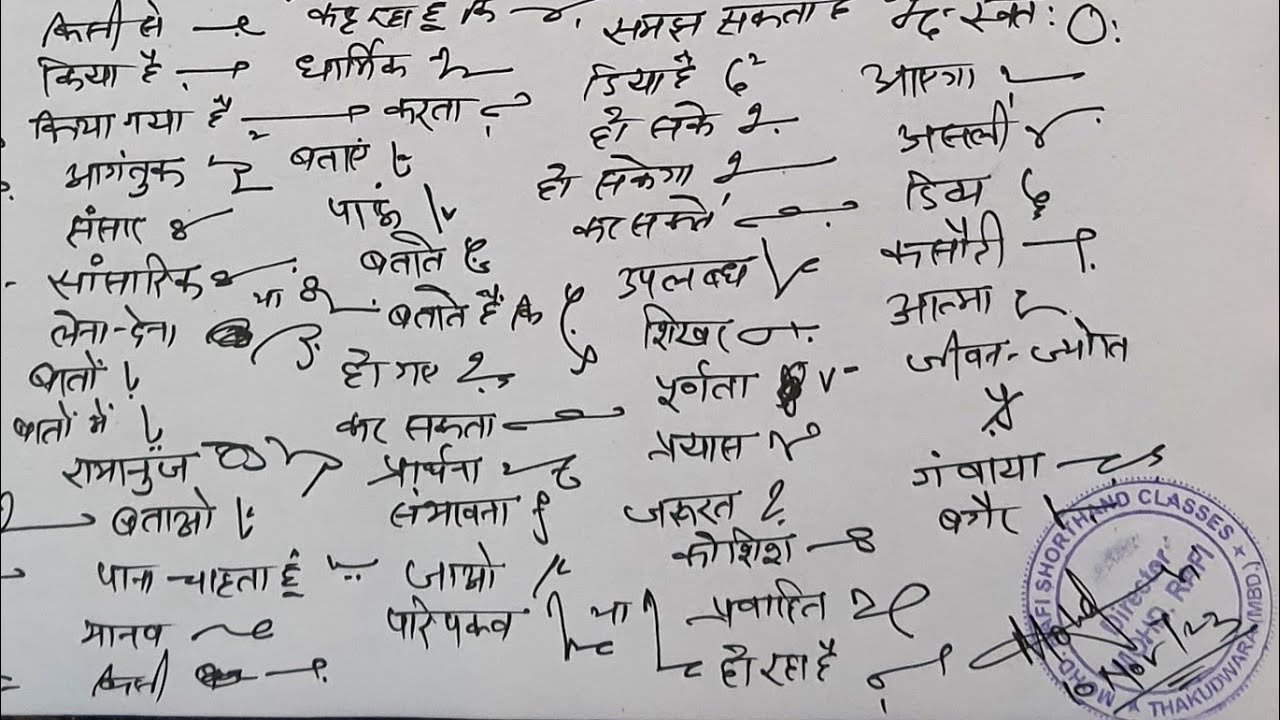 किसी से
किया है
किया गया है
आगंतुक
संसार
सांसारिक या
लेना-देना
बातों
बातों में
रामानुज
बताओ
पाना चाहता हूं
मानव
किसी
कह रहा हूं कि
धार्मिक
करता
बताएं
पाऊं
बताते
बताते हैं कि
हो गए
कर सकता
प्रार्थना
संभावना
जाओ
परिपक्व या
समझ सकता
दिया है
हो सके
हो सकेगा
कर सकते
उपलब्ध
शिखर
पूर्णता
प्रयास
जरूरत
कोशिश
प्रवाहित
हो रहा है
आएगा
असली
दिव्य
कसौटी
आत्मा
जीवन-ज्योति
गंवाया
बगैर
MOHD. RAFI SHORTHAND CLASSES
THAKUDWARA (MBD.)
Director
MOHD. RAFI
10 Nov 23